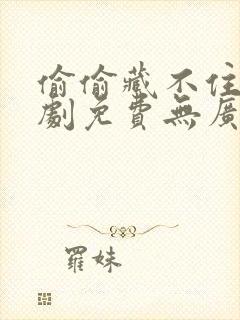 偷偷藏不住
劇免費無廣
羅妹